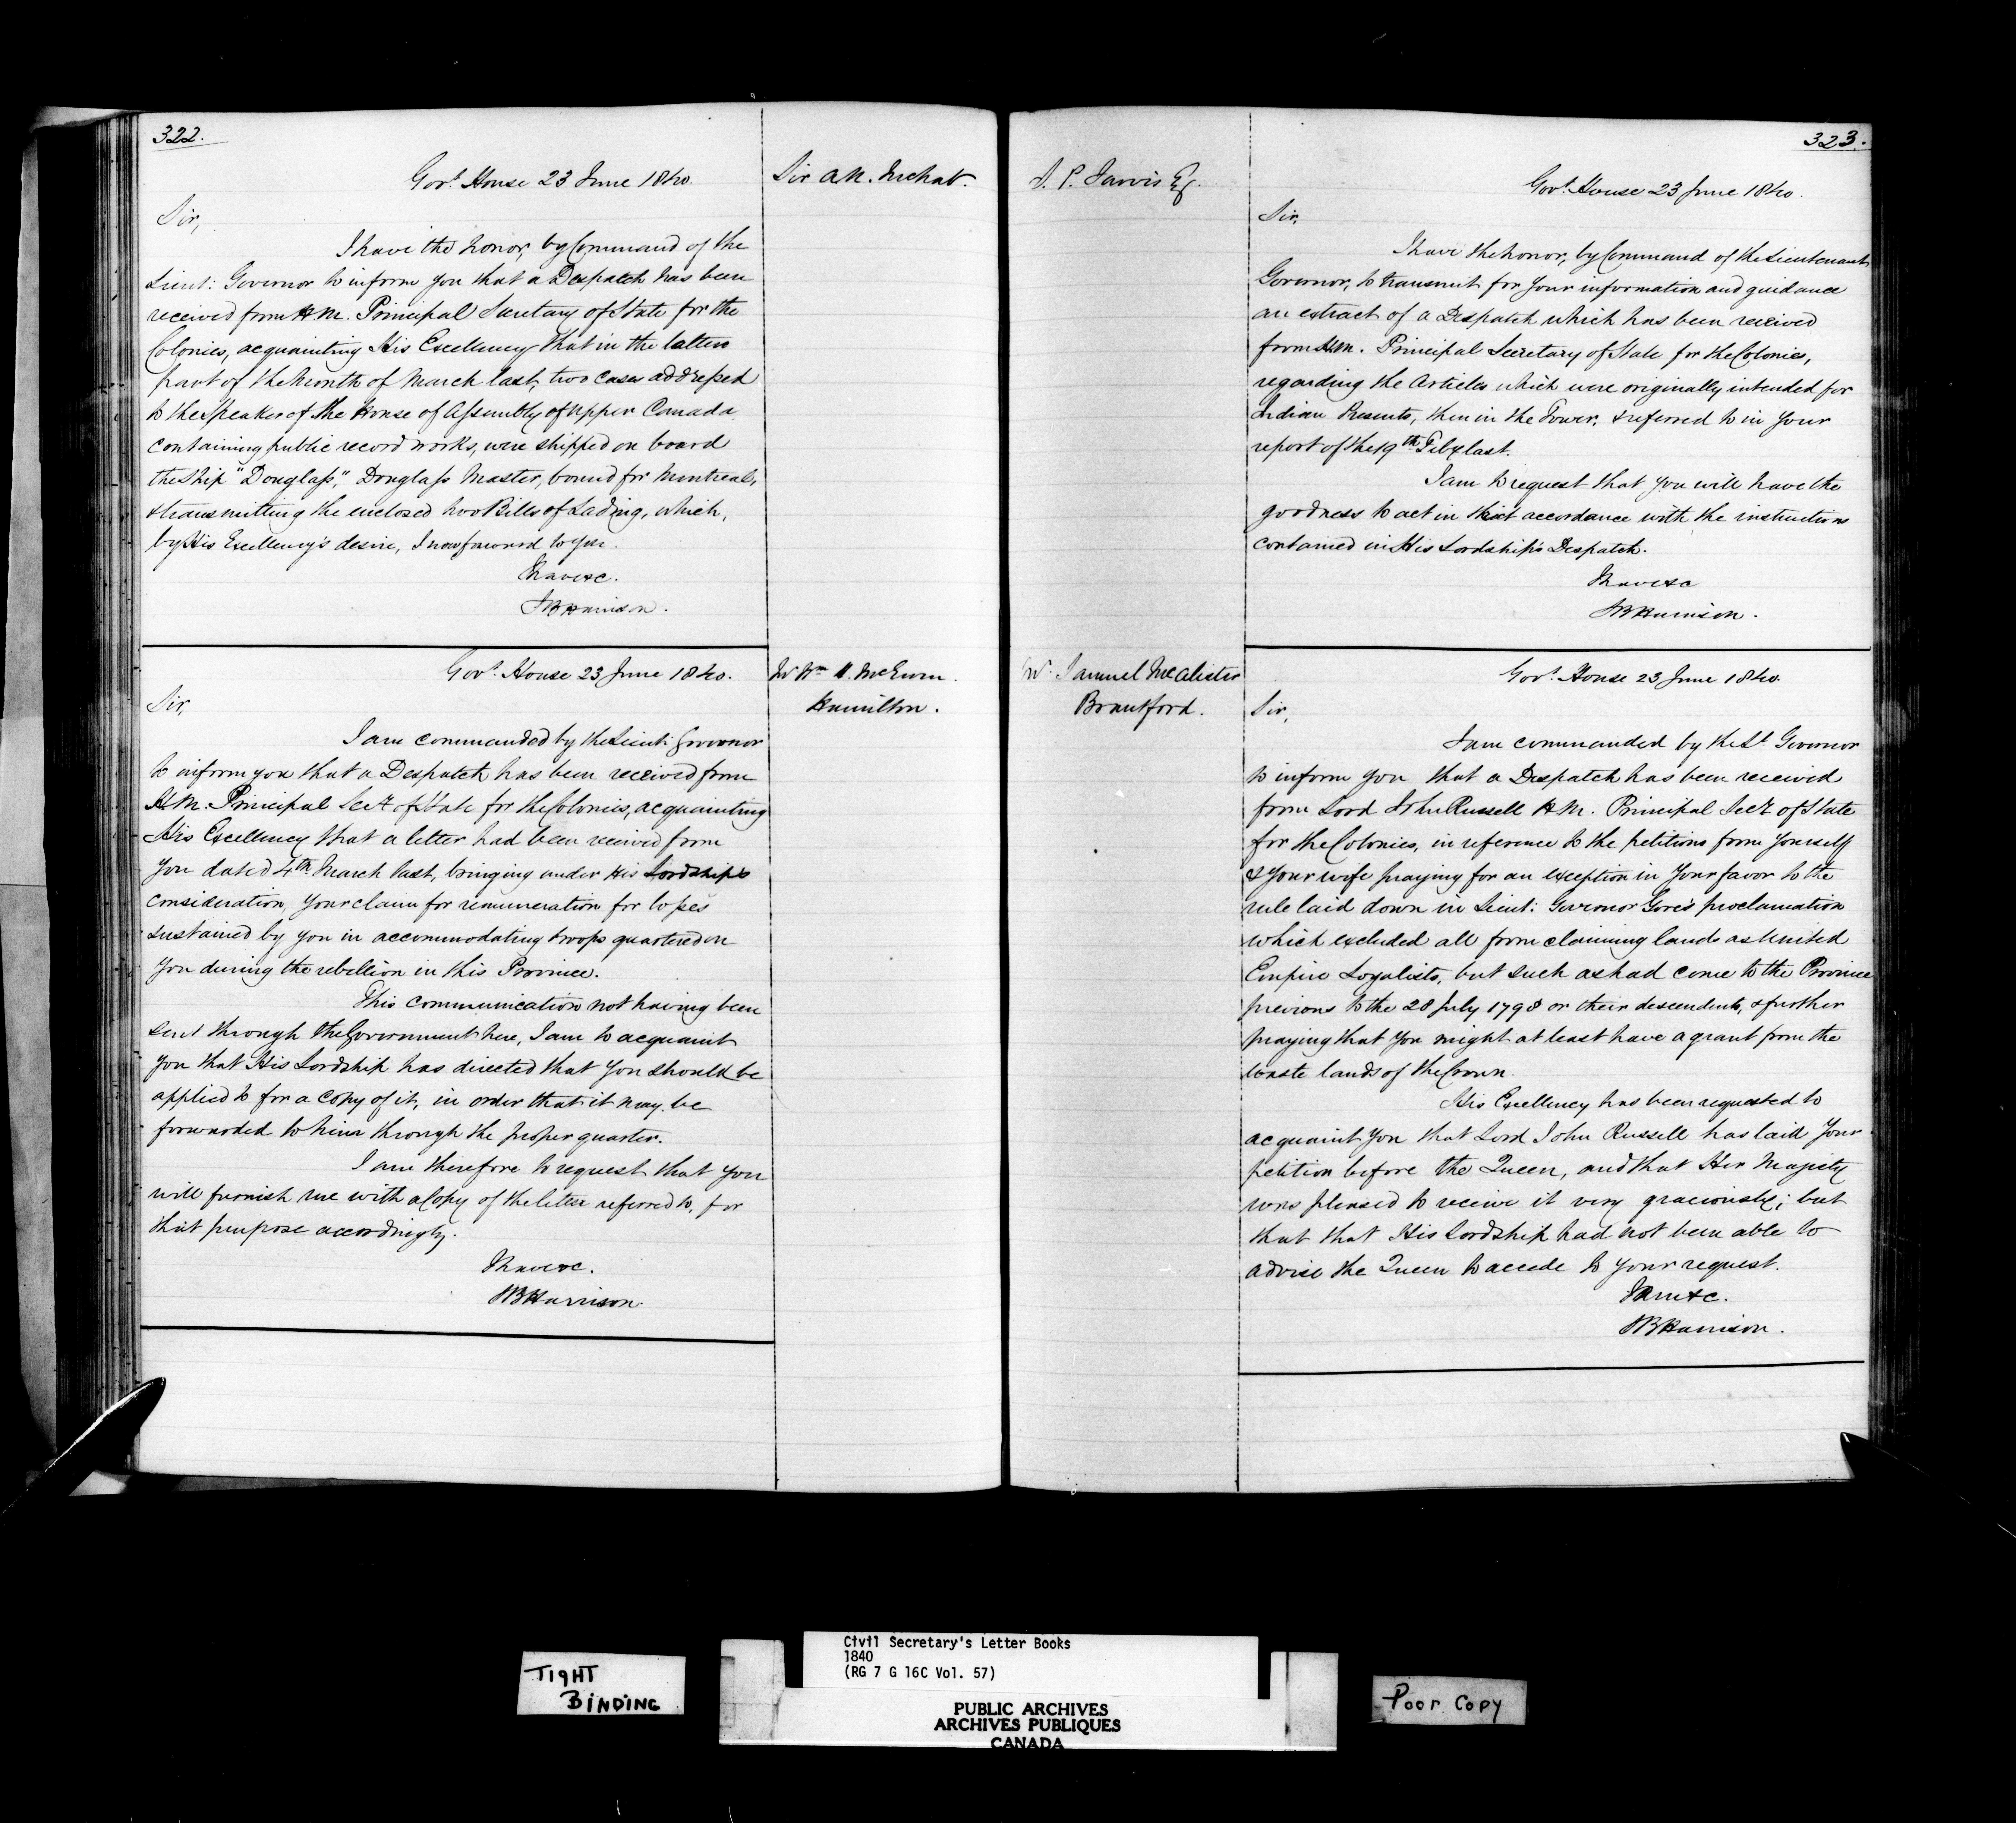 322.
Sir A. N. McNab.
Govt. House 23 June 1840.
Sir,
I have the honor, by Command of the
Lieut: Governor to inform you that a Despatch has been
received from H.M. Principal Secretary of State for the
Colonies, acquainting His Excellency that in the latter
part of the month of March last, two cases addressed
to the Speaker of the House of Assembly of Upper Canada
containing public record works, were shipped on board
the Ship "Douglass," Douglass Master, bound for Montreal,
& transmitting the enclosed two Bills of Lading, which,
by His Excellency's desire, I now forward to you.
I have &c.
SBHarrison.
Mr Wm. McEwen.
Hamilton.
Govt. House 23 June 1840.
Sir,
I am commanded by the Lieut: Governor
to inform you that a Despatch has been received from
H.M. Principal Secy of State for the Colonies, acquainting
His Excellency that a letter had been received from
you dated 4th March last, bringing under His Lordship's
consideration, your claim for remuneration for losses
sustained by you in accommodating troops quartered on
you during the rebellion in this Province.
This communication not having been
sent through the Government here, I am to acquaint
you that His Lordship has directed that you should be
applied to for a copy of it, in order that it may be
forwarded to him through the proper quarter.
I am therefore to request that you
will furnish me with a Copy of the letter referred to, for
that purpose accordingly.
I have &c.
SBHarrison.
323.
S. P. Jarvis Esq.
Govt. House 23 June 1840.
Sir,
I have the honor, by Command of the Lieutenant
Governor, to transmit for your information and guidance
an extract of a Despatch which has been received
from H.M. Principal Secretary of State for the Colonies,
regarding the Articles which were originally intended for
Indian Presents, then in the Tower, & referred to in your
report of the 19th Feby last.
I am to request that you will have the
goodness to act in strict accordance with the instructions
contained in His Lordship's Despatch.
I have &c
SBHarrison.
Mr. Samuel McAlister
Brantford.
Govt. House 23 June 1840.
Sir,
I am commanded by the Lt. Governor
to inform you that a Despatch has been received
from Lord John Russell H.M. Principal Secy of State
for the Colonies, in reference to the petitions from yourself
& your wife praying for an exception in your favor to the
rule laid down in Lieut: Governor Gore's proclamation
which excluded all from claiming lands as United
Empire Loyalists, but such as had come to the Province
previous to the 28 July 1798 or their descendents, & further
praying that you might at least have a grant from the
waste lands of the Crown.
His Excellency has been requested to
acquaint you that Lord John Russell has laid your
petition before the Queen, and that Her Majesty
was pleased to receive it very graciously; but
that that His Lordship had not been able to
advise the Queen to accede to your request.
I am &c.
SBHarrison.
TIGHT
BINDING
Civil Secretary's Letter Books
1840
(RG 7 G 16C Vol. 57)
PUBLIC ARCHIVES
ARCHIVES PUBLIQUES
CANADA
Poor Copy